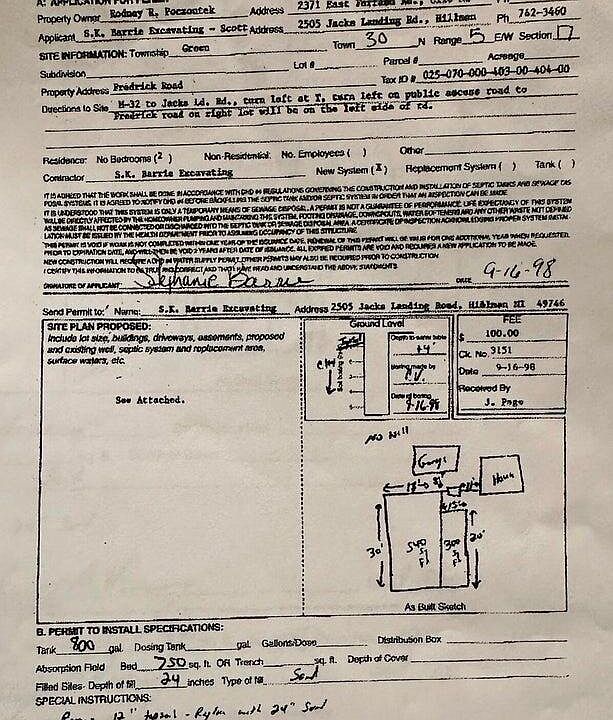 A: APPLICATION FOR PERMIT
Property Owner Rodney R. Poczontek Address 2371 East Rd.,
Applicant S.K. Barrie Excavating - Scott Address 2505 Jacks Landing Rd., Hillman Ph 742-3460
SITE INFORMATION: Township Green Town 30 N Range 5 E/W Section
Subdivision Lot # Parcel # Acreage
Property Address Fredrick Road Tax ID # 025-070-000-403-00-404-00
Directions to Site M-32 to Jacks Ld. Rd., turn left at T, turn left on public access road to
Fredrick road on right lot will be on the left side of rd.
Residence: No Bedrooms (2) Non-Residential: No. Employees ( ) Other
Contractor S.K. Barrie Excavating New System (X) Replacement System ( ) Tank ( )
IT IS AGREED THAT THE WORK SHALL BE DONE IN ACCORDANCE WITH REGULATIONS GOVERNING THE CONSTRUCTION AND INSTALLATION OF SEPTIC TANKS AND SEWAGE DIS-
POSAL SYSTEMS. IT IS AGREED TO NOTIFY BEFORE BACKFILLING THE SEPTIC TANK AND/OR SEPTIC SYSTEM IN ORDER THAT AN INSPECTION CAN BE MADE.
IT IS UNDERSTOOD THAT THIS SYSTEM IS ONLY A TEMPORARY MEANS OF SEWAGE DISPOSAL. A PERMIT IS NOT A GUARANTEE OF PERFORMANCE. LIFE EXPECTANCY OF THIS SYSTEM
WILL BE DIRECTLY AFFECTED BY THE HOMEOWNER PUMPING AND MAINTAINING THIS SYSTEM. FOOTING DRAINAGE, DOWNSPOUTS, WATER SOFTENERS AND ANY OTHER WASTE NOT DEFINED
AS SEWAGE SHALL NOT BE CONNECTED OR DISCHARGED INTO THE SEPTIC TANK OR SEWAGE DISPOSAL AREA. A CERTIFICATE OF INSPECTION ACKNOWLEDGING PROPER SYSTEM INSTAL-
LATION MUST BE ISSUED BY THE HEALTH DEPARTMENT PRIOR TO OCCUPANCY OF THIS STRUCTURE.
THIS PERMIT IS VOID IF WORK IS NOT COMPLETED WITHIN ONE YEAR OF THE ISSUANCE DATE. RENEWAL OF THIS PERMIT WILL BE VALID FOR ONE ADDITIONAL YEAR WHEN REQUESTED
PRIOR TO EXPIRATION DATE, AND WILL THEN BE VOID 2 YEARS AFTER DATE OF ISSUANCE. ALL EXPIRED PERMITS ARE VOID AND REQUIRES A NEW APPLICATION TO BE MADE.
NEW CONSTRUCTION WILL REQUIRE A WATER SUPPLY PERMIT. OTHER PERMITS MAY ALSO BE REQUIRED PRIOR TO CONSTRUCTION
I CERTIFY THIS INFORMATION TO BE TRUE AND CORRECT AND THAT I HAVE READ AND UNDERSTAND THE ABOVE STATEMENTS
SIGNATURE OF APPLICANT Stephanie Barrie DATE 9-16-98
Send Permit to: Name: S.K. Barrie Excavating Address 2505 Jacks Landing Road, Hillman MI 49746
SITE PLAN PROPOSED:
Include lot size, buildings, driveways, easements, proposed
and existing well, septic system and replacement area,
surface waters, etc.
See Attached.
Ground Level
Depth to water table
+4
Boring made by
C.V.
Date of boring
9-16-98
FEE
$ 100.00
Ck. No. 3151
Date 9-16-98
Received By
J. Page
No Well
Garage
House
30'
540
SF
300
SF
20'
As Built Sketch
B. PERMIT TO INSTALL SPECIFICATIONS:
Tank 800 gal. Dosing Tank gal. Gallons/Dose Distribution Box
Absorption Field Bed 750 sq. ft. OR Trench sq. ft. Depth of Cover
Filled Sites- Depth of fill 24 inches Type of fill Sand
SPECIAL INSTRUCTIONS:
12" topsoil - Replace with 24" Sand